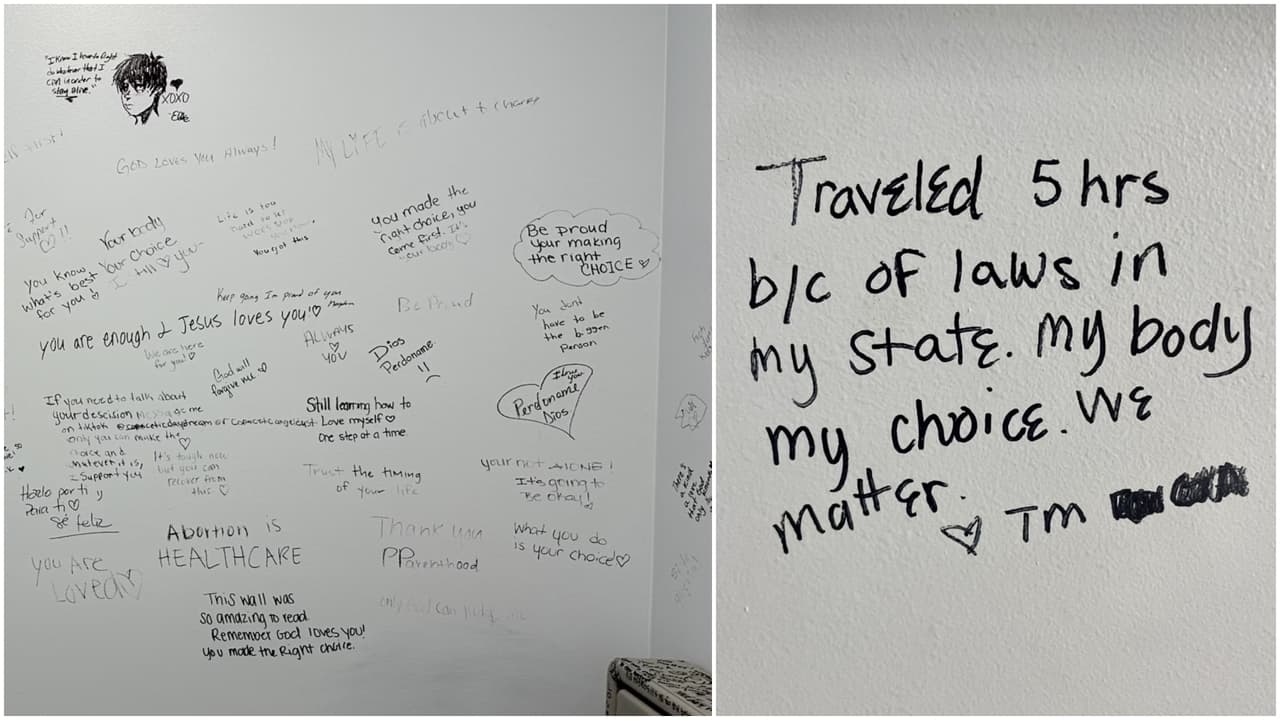 "I know I have to fight
do whatever that I
can in order to
stay alive."
XOXO
-Ellie
GOD LOVES YOU Always!
MY LIFE is about to change
For
Support
you know
what's best
for you
Your body
Your choice
I still ♡ you
Life is too
hard to let
You got this
you made the
right choice, you
come first. It's
your body ♡
Be proud
your making
the right
CHOICE ♡
Keep going I'm proud of you
you are enough & Jesus loves you!♡
We are here
for you!♡
God will
forgive me ♡
ALWAYS
♡
YOU
Be Proud
Dios
Perdoname.
You dont
have to be
the bigger
person
I love you
Perdoname
Dios
If you need to talk about
your descision message me
on tiktok @cosmeticdaydream or cosmeticangelcest
only you can make the
choice and
whatever it is,
I support you
♡
It's tough now
but you can
recover from
this ♡
Still learning how to
Love myself ♡
one step at a time.
Trust the timing
of your life
your not ALONE!
It's going to
Be okay!
Hazlo por ti y
Para ti ♡
Sé feliz
Abortion is
HEALTHCARE
Thank you
PParenthood
What you do
is your choice♡
you Are
Loved♡
This wall was
so amazing to read.
Remember God loves you!
You made the Right choice.
only God can judge me
Traveled 5 hrs
b/c of laws in
my state. my body
my choice. we
matter.
♡ Tm